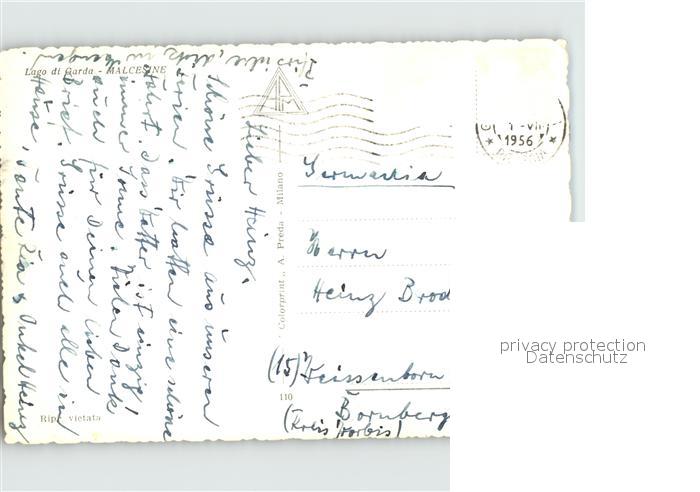 Lago di Garda - MALCESINE
Lieber Heinz,
Schöne Grüsse aus unseren
Ferien. Wir hatten eine schöne
Fahrt. Das Wetter ist einzig!
immer Sonne. Vielen Dank
auch für Deinen lieben
Brief. Grüsse auch alle in
Hause, Tante Lia & Onkel Heinz
Ripr. vietata
Colorprint „ A. Preda - Milano
110
1956
Germania
Herrn
Heinz Brod
(15) Weissenborn
Bornberg
(Kreis Worbis)
privacy protection
Datenschutz